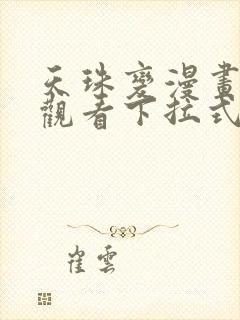 天珠變漫畫
觀看下拉式
崔雲